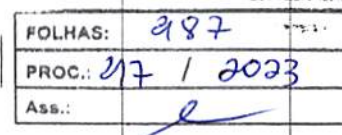 FOLHAS: 987
PROC.: 217 / 2023
Ass.: